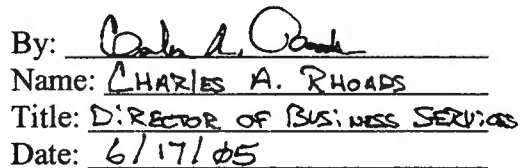 By:
Name: CHARLES A. RHOADS
Title: DIRECTOR OF BUSINESS SERVICES
Date: 6/17/05